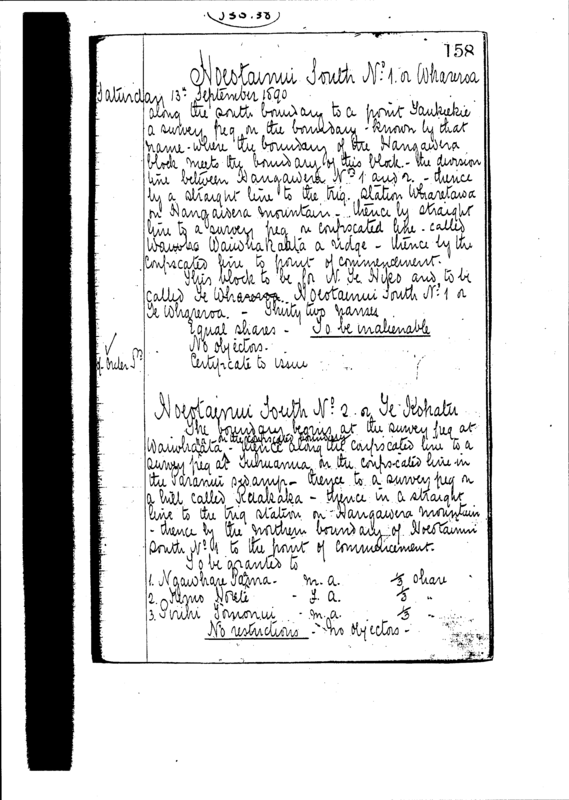 158
Hoeotainui South No. 1. or Wharoroa
Saturday 13th September 1890
along the south boundary to a point
a survey peg on the boundary - known by that
name - where the boundary of the Hangawera
block meets the boundary of this block - the division
line between Hangawera No. 1 and 2. - thence
by a straight line to the trig. station
on Hangawera mountain - thence by straight
line to a survey peg on confiscated line - called
a ridge - thence by the
confiscated line to point of commencement.
This block to be for N. Te Hiko and to be
called Te Hoeotainui South No. 1 or
Te - Thirty two names
Equal shares - To be inalienable
No objectors.
Order
Certificate to issue
Hoeotainui South No. 2 or Te Kohatu
The boundary begins at the survey peg at
on the confiscated boundary
- thence along the confiscated line to a
survey peg at on the confiscated line in
the swamp - thence to a survey peg on
a hill called - thence in a straight
line to the trig station on Hangawera mountain
- thence by the northern boundary of Hoeotainui
South No. 1 to the point of commencement.
To be granted to
1. Ngawhare - m. a. 1/3 share
2. - f. a. 1/3 "
3. - m. a. 1/3 "
No restrictions - No objectors -